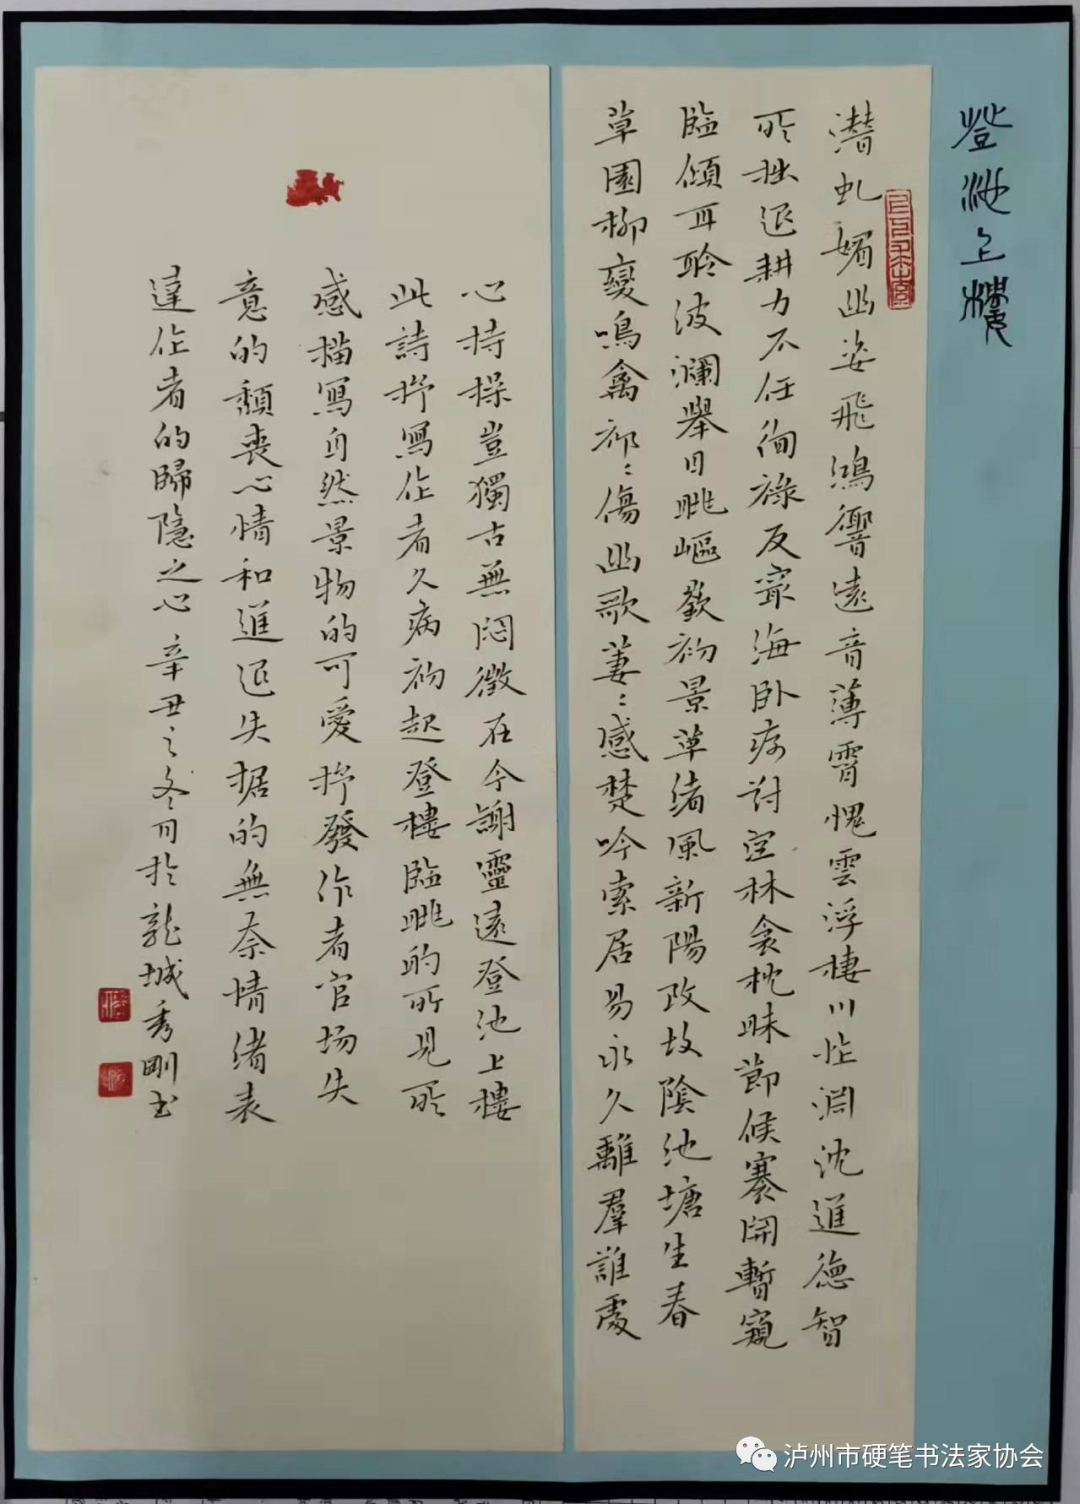 登池上樓
潛虬媚幽姿飛鴻響遠音薄霄愧雲浮棲川怍淵沈進德智
所拙退耕力不任徇祿反窮海卧疴對空林衾枕昧節候褰開暫窺
臨傾耳聆波瀾舉目眺嶇嶔初景革緒風新陽改故陰池塘生春
草園柳變鳴禽祁〻傷幽歌萋〻感楚吟索居易永久離群難處
心持操豈獨古無悶徵在今謝靈運登池上樓
此詩抒寫作者久病初起登樓臨眺的所見所
感描寫自然景物的可愛抒發作者官场失
意的頹喪心情和進退失据的無奈情緒表
達作者的歸隱之心辛丑之冬月於龍城秀剛书
泸州市硬笔书法家协会